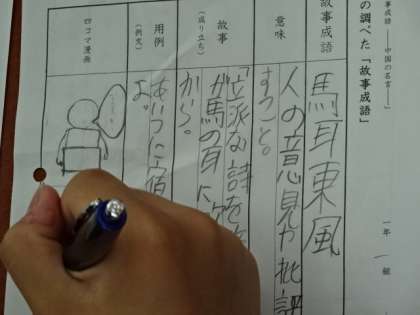 故事成語 ――中国の名言――
の調べた「故事成語」
一年 一組
故事成語
馬耳東風
意味
人の意見や批評
すること。
故事
(成り立ち)
「立派な詩を
が馬の耳に
から。
用例
(例文)
あいつに
よ。
四コマ漫画